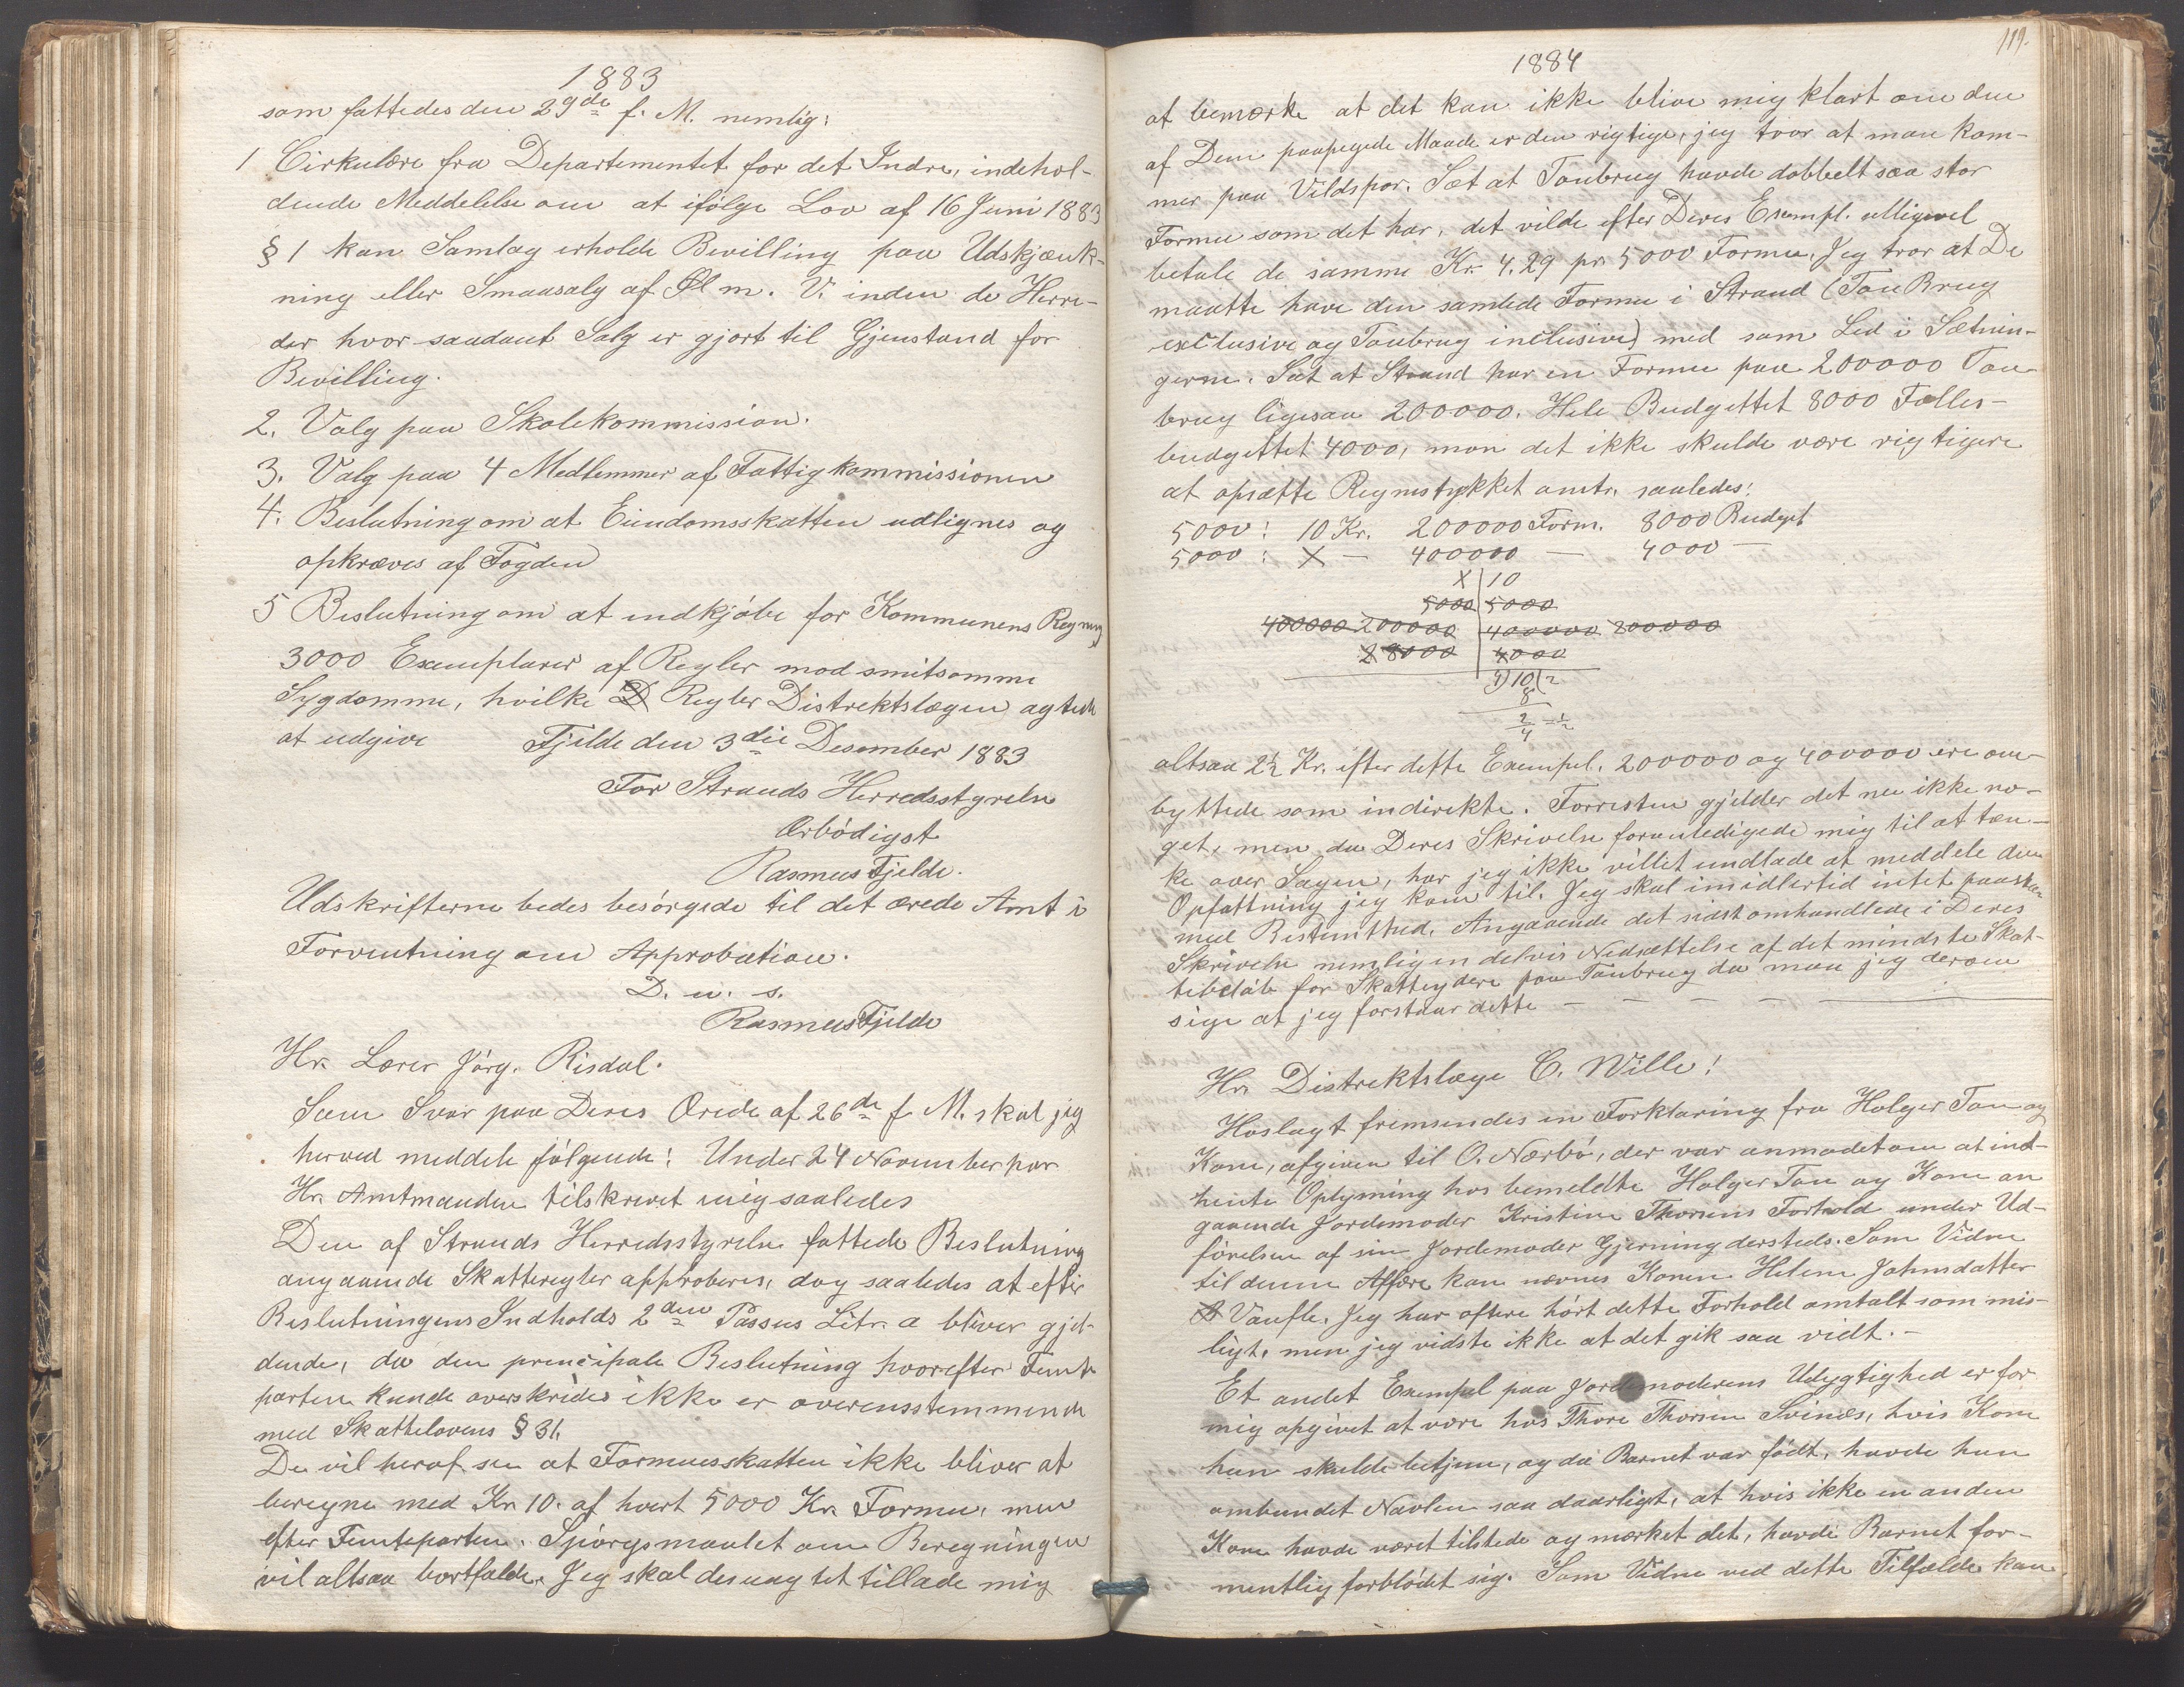 1883
som fattedes den 29de f. M. nemlig:
1 Cirkulære fra Departementet for det Indre, indehol-
dende Meddelelse om at ifølge Lov af 16 Juni 1883
§ 1 kan Samlag erholde Bevilling paa Udskjænk-
ning eller Smaasalg af Øl m. V. inden de Herre-
der hvor saadant Salg er gjort til Gjenstand for
Bevilling.
2. Valg paa Skolekommission.
3. Valg paa 4 Medlemmer af Fattigkommissionen
4. Beslutning om at Eiendomsskatten udlignes og
opkræves af Fogden
5 Beslutning om at indkjøbe for Kommunens Regning
3000 Exemplarer af Regler mod smitsomme
Sygdomme, hvilke D Regler Distrektslægen agtede
at udgive Fjelde den 3die Desember 1883
For Strands Herredsstyrelse
Ærbödigst
Rasmus Fjelde.
Udskrifterne bedes besörgede til det ærede Amt i
Forventning om Approbation.
D. u. s.
Rasmus Fjelde
Hr. Lærer Jörg. Risdal.
Som Svar paa Deres Ærede af 26de f. M. skal jeg
herved meddele fölgende: Under 24 November har
Hr. Amtmanden tilskrevet mig saaledes
Den af Strands Herredsstyrelse fattede Beslutning
angaaende Skatteregler approberes, dog saaledes at efter
Beslutningens Indholds 2den Passus Litr. a bliver gjel-
dende, da den principale Beslutning hvorefter Femte
parten kunde overskrides ikke er overensstemmende
med Skattelovens § 31.
De vil heraf se at Formuesskatten ikke bliver at
beregne med Kr. 10. af hvert 5000 Kr. Formue, men
efter Femteparten. Spörgsmaalet om Beregningen
vil altsaa bortfalde. Jeg skal desuagtet tillade mig
119.
1884
at bemærke at det kan ikke blive mig klart om den
af Dem paapegede Maade er den rigtige, jeg tror at man kom-
mer paa Vildspor. Sæt at Taubrug havde dobbelt saa stor
Formue som det har, det vilde efter Deres Exempl. alligevel
betale de samme Kr. 4.29 pr. 5000 Formue. Jeg tror at De
maatte have den samlede Formue i Strand (Tau Brug
exclusive og Taubrug inclusive) med som Led i Sætnin-
gerne. Sæt at Strand har en Formue paa 200000 Tau-
brug ligesaa 200000. Hele Budgettet 8000 Fælles-
budgettet 4000, mon det ikke skulde være rigtigere
at opsætte Regnestykket omtr. saaledes:
5000: 10 Kr. 200000 Form. 8000 Budget
5000: X — 400000 — 4000 —
X | 10
5000 | 5000
400000 200000 | 400000 200000
2 8000 | 4000
4) 10 (2
8
2/4 = 1/2
altsaa 2½ Kr. efter dette Exempel. 200000 og 400000 ere om-
byttede som indirekte. Forresten gjelder det nu ikke no-
get, men da Deres Skrivelse foranledigede mig til at tæn-
ke over Sagen, har jeg ikke villet undlade at meddele den
Opfattning jeg kom til. Jeg skal imidlertid intet paastaa
med Bestemthed. Angaaende det sidst omhandlede i Deres
Skrivelse nemlig en delvis Nedsættelse af det mindste Skat-
tebelöb for Skatteydere paa Taubrug da maa jeg derom
sige at jeg forstaar dette — — — —
Hr. Distrektslæge C. Wille!
Hoslagt fremsendes en Forklaring fra Holger Tau og
Kone, afgiven til O. Nærbö, der var anmodet om at ind-
hente Oplysning hos bemeldte Holger Tau og Kone an
gaaende Jordemoder Kristine Thorsens Forhold under Ud-
förelsen af sin Jordemoder Gjerning dersteds. Som Vidne
til denne Affære kan nævnes Konen Helene Johnsdatter
Vaufle. Jeg har oftere hört dette Forhold omtalt som mis-
ligt, men jeg vidste ikke at det gik saa vidt. —
Et andet Exempel paa Jordemoderens Udygtighed er for
mig opgivet at være hos Thore Thorsen Svinæs, hvis Kone
hun skulde betjene, og da Barnet var födt, havde hun
ombundet Navlen saa daarligt, at hvis ikke en anden
Kone havde været tilstede og mærket det, havde Barnet for-
mentlig forblödet sig. Som Vidne ved dette Tilfælde kan